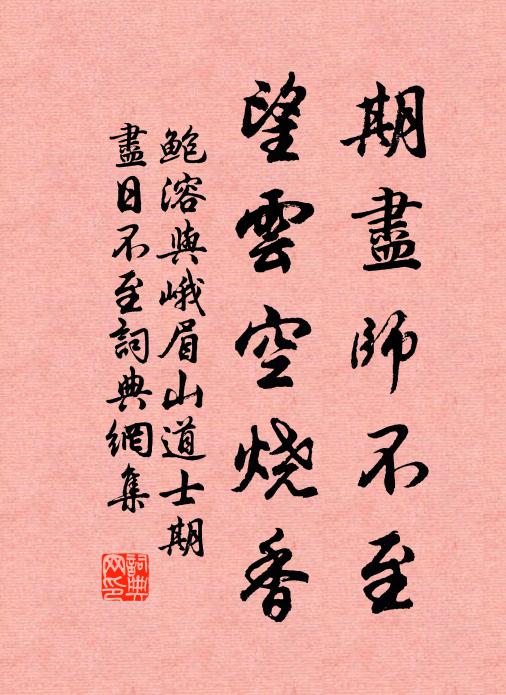 期盡師不至
望雲空烧香
鲍溶與峨眉山道士期
盡日不至詞典網集
詞典
网印